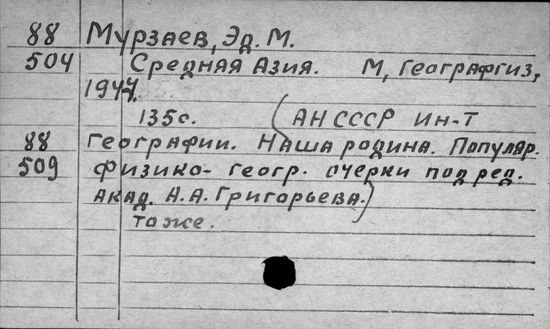 88 Мурзаев, Эд. М.
504 Средная Азия. М, Географгиз,
1947.
135с. (АН СССР Ин-т
88 Географии. Наша родина. Популяр.
509 физико-геогр. очерки под ред.
акад. А.А. Григорьева.)
тоже.